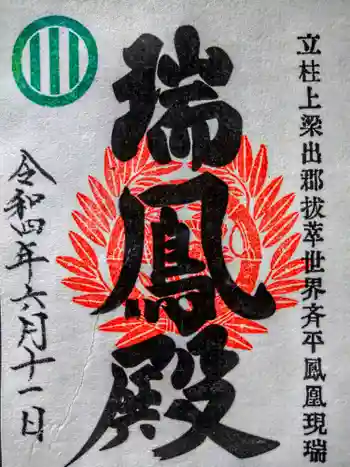 立柱上梁出郡抜萃世界斉平鳳凰現瑞
瑞鳳殿
令和四年六月十一日